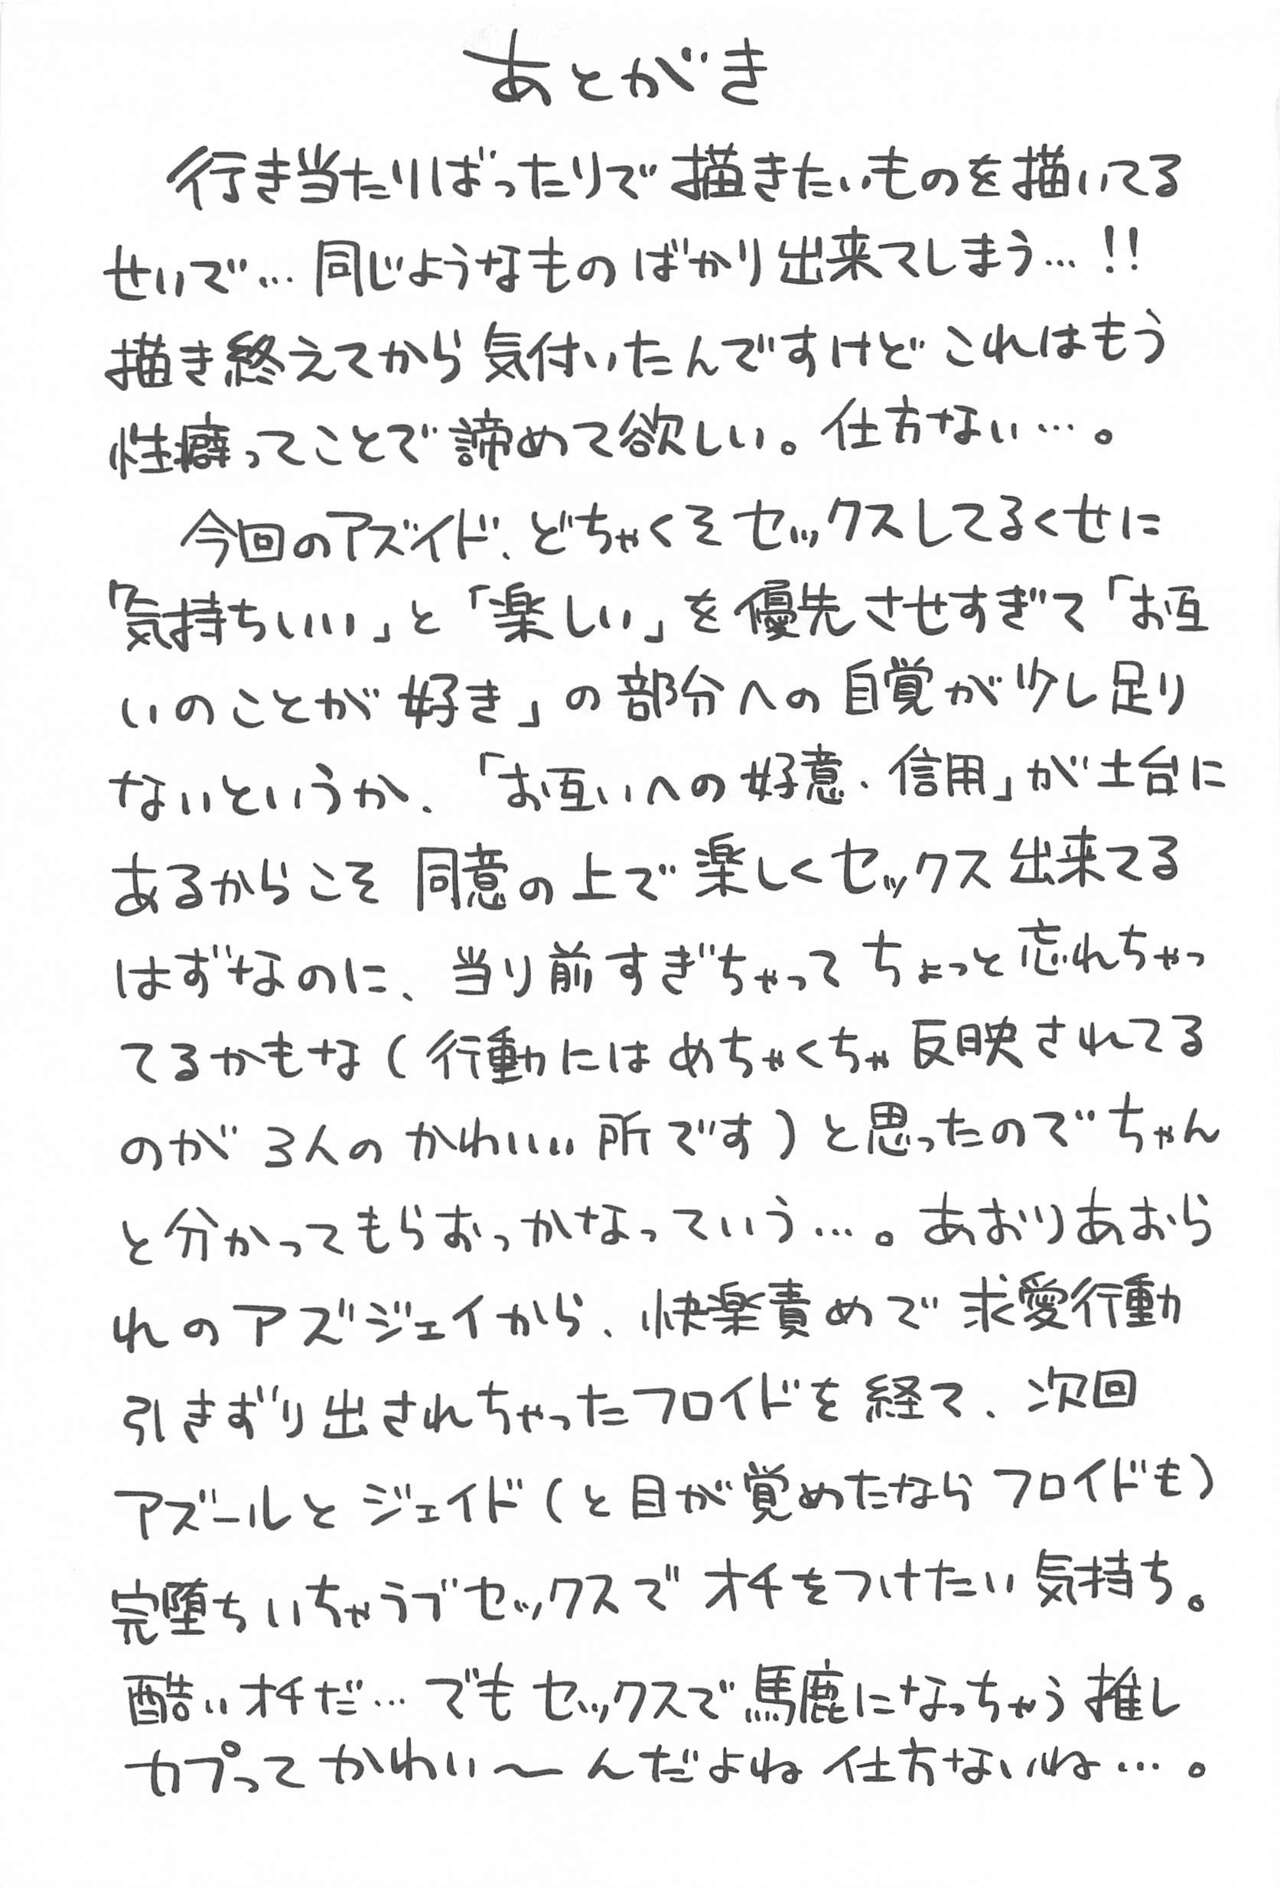 あとがき
行き当たりばったりで描きたいものを描いてる
せいで…同じようなものばかり出来てしまう…!!
描き終えてから気付いたんですけどこれはもう
性癖ってことで諦めて欲しい。仕方ない…。
今回のアズイド、どちゃくそセックスしてるくせに
「気持ちいい」と「楽しい」を優先させすぎて「お互
いのことが好き」の部分への自覚が少し足り
ないというか、「お互いへの好意、信用」が土台に
あるからこそ同意の上で楽しくセックス出来てる
はずなのに、当り前すぎちゃってちょっと忘れちゃっ
てるかもな(行動にはめちゃくちゃ反映されてる
のが3人のかわいい所です)と思ったのでちゃん
と分かってもらおっかなっていう…。あおりあおら
れのアズジェイから、快楽責めで求愛行動
引きずり出されちゃったフロイドを経て、次回
アズールとジェイド(と目が覚めたならフロイドも)
完堕ちいちゃらブセックスでオチをつけたい気持ち。
酷いオチだ…でもセックスで馬鹿になっちゃう推し
カプってかわい～んだよね仕方ないね…。